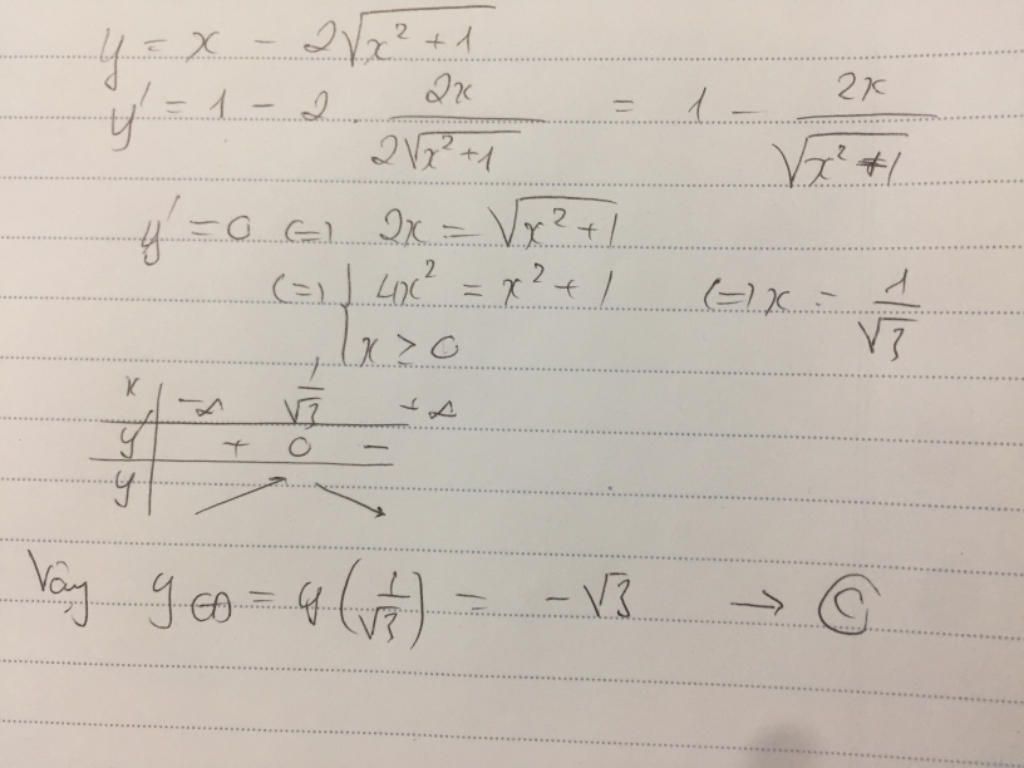 y = x - 2√(x² + 1)
y' = 1 - 2 . 2x / (2√(x² + 1)) = 1 - 2x / √(x² + 1)
y' = 0 (=) 2x = √(x² + 1)
(=) { 4x² = x² + 1 (=) x = 1/√3
x ≥ 0
x | -∞ 1/√3 +∞
y' | + 0 -
y | ↗ ↘
Vậy y CĐ = y(1/√3) = -√3 → Ⓒ